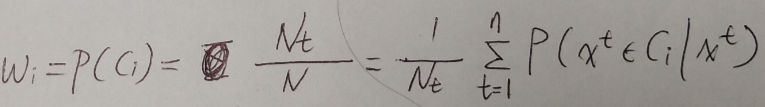 wᵢ = P(Cᵢ) = Nt / N = 1 / Nt n Σ t=1 P(xᵗ ∈ Cᵢ | xᵗ)